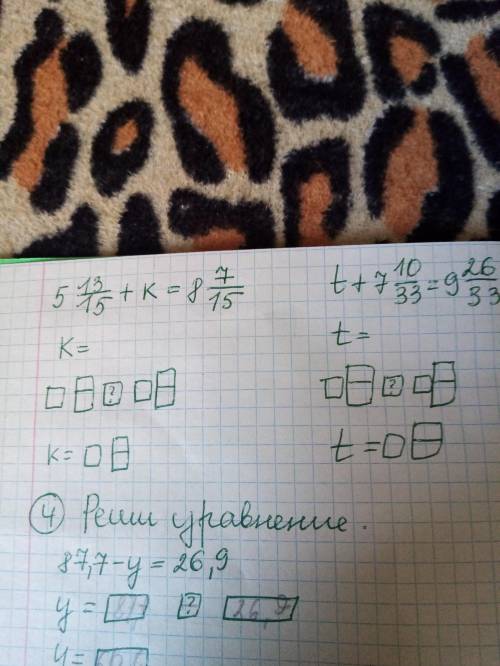 5 13/15 + к = 8 7/15
к =
□ □/□ ? □ □/□
к = □ □/□
t + 7 10/33 = 9 26/33
t =
□ □/□ ? □ □/□
t = □ □/□
4 Реши уравнение.
87,7 - y = 26,9
y = ? 26,9
y =